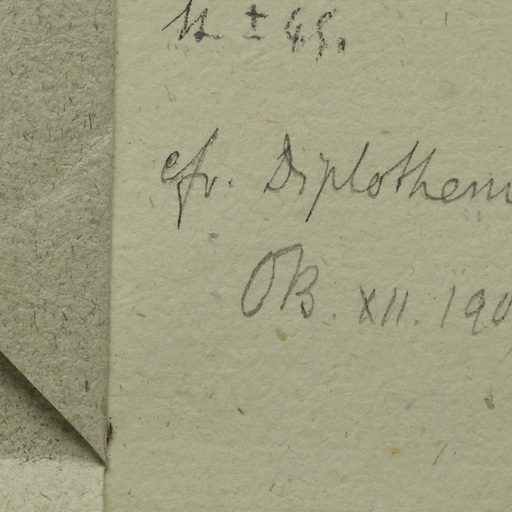 ± 45.
cfr. Diplothem
OB. XII. 190